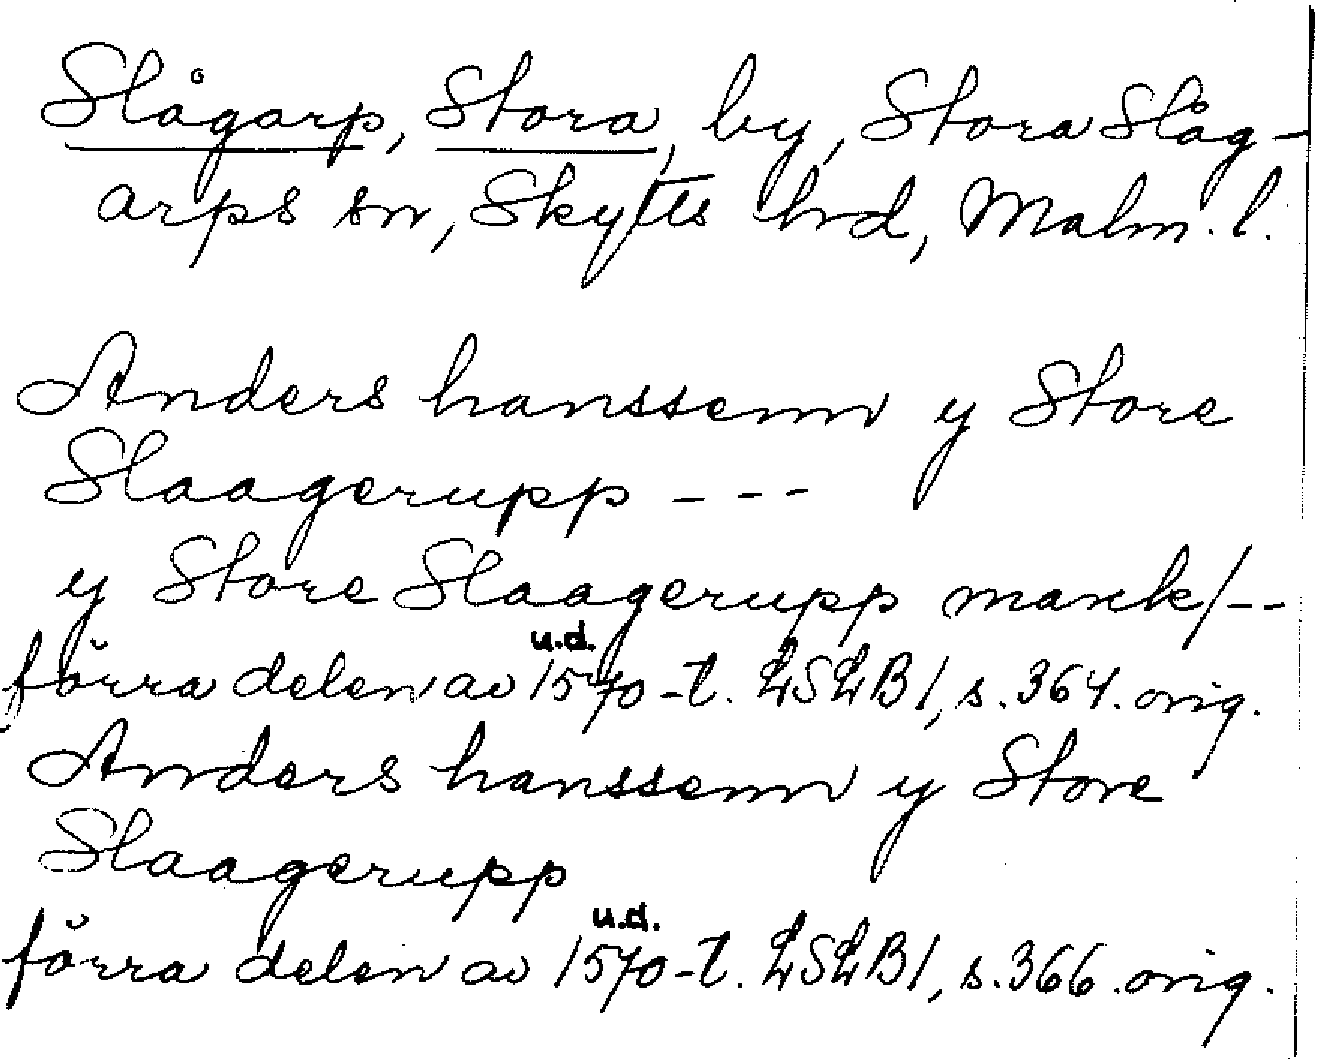 Slågarp, Stora, by, Stora Slåg-
arps sn, Skytts hrd, Malm. l.
Anders hanssenn y Store
Slaagerupp - - -
y Store Slaagerupp marck/--
u.d.
förra delen av 1570-t. LSLB1, s. 364. orig.
Anders hanssenn y Store
Slaagerupp
u.d.
förra delen av 1570-t. LSLB1, s. 366. orig.